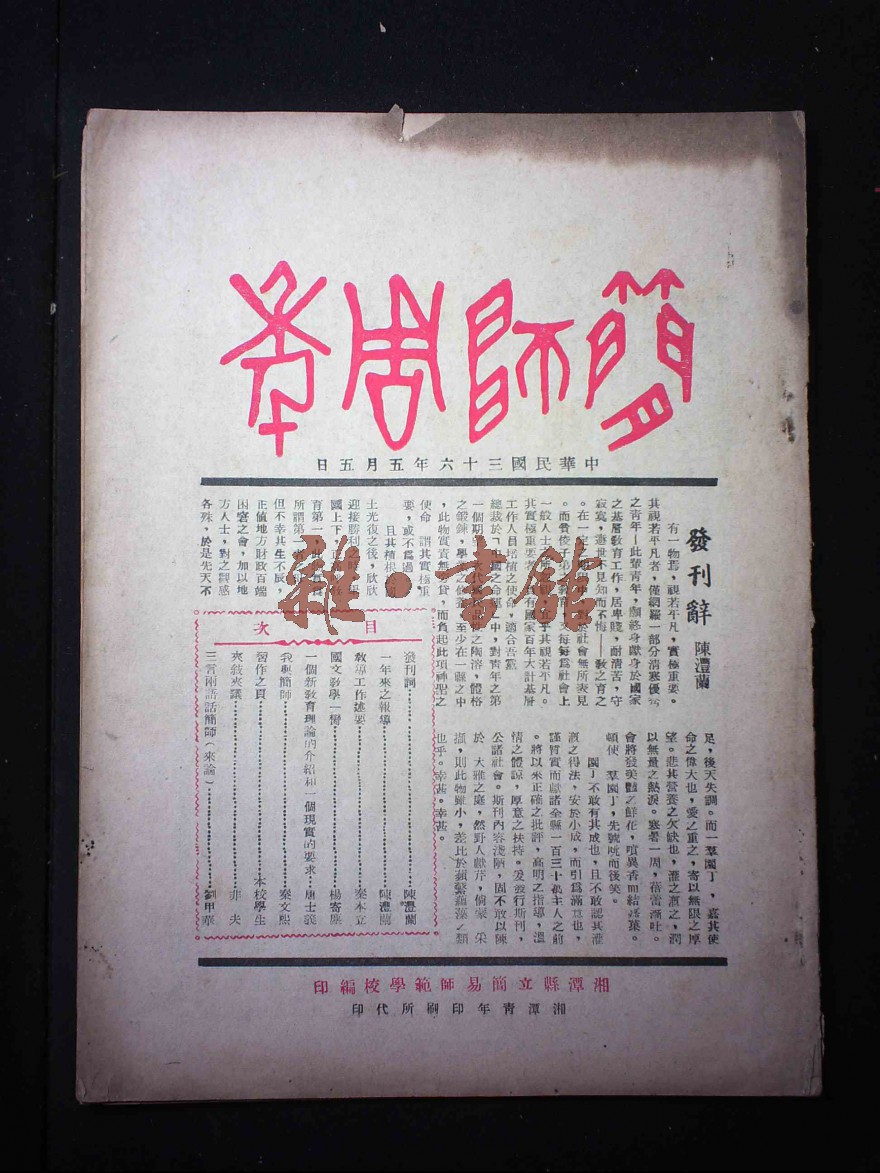 簡師周年
中華民國三十六年五月五日
發刊辭
陳澧蘭
有一物焉，視若平凡，實極重要。
其視若平凡者，僅網羅一部分清寒優秀
之青年—此輩青年，願終身獻身於國家
之基層教育工作，居卑賤，耐清苦，守
寂寞，遯世不見知而不悔——教之育之
一般人士
其實極重要者
國家百年大計基層
工作人員培植之使命，適合吾黨
總裁於「中國之命運」中，對青年之第
一個期
之鍛鍊，學
至少在一縣之中
，此物實責無旁貸，而負起此項神聖之
使命，謂其實極重
要，或不爲過。
且其植根
土光復之後，欣欣
迎接勝利之時，舉
國上下，正
育第一，此
所謂第一者
但不幸其生不辰，
正值地方財政百端
困窘之會，加以地
方人士，對之觀感
各殊，於是先天不
足，後天失調。而一羣園丁，嘉其使
命之偉大也，愛之重之，寄以無限之厚
望。悲其營養之欠缺也，灌之漑之，潤
以無量之熱淚。寒暑一周，蓓蕾漸吐。
會將發美豔之鮮花，噴異香而結碩菓。
頓使 羣園丁，先號咷而後笑。
園丁不敢有其成也，且不敢認其灌
漑之得法，安於小成，而引爲滿意也，
謹質實而獻諸全縣一百三十萬主人之前
。將以求正確之批評，高明之指導，溫
情之體諒，厚意之扶持。爰發行斯刊，
公諸社會。斯刊內容淺陋，固不敢以陳
於 大雅之庭，然野人獻芹，倘蒙 采
擷，則此物雖小，差比於蘋蘩薀藻之類
也乎。幸甚。幸甚。
目次
發刊詞 陳澧蘭
一年來之報導 陳澧蘭
敎導工作述要 秦本立
國文敎學一臠 楊寄塵
一個新敎育理論的介紹和一個現實的要求 唐士義
我與簡師 秦文熙
習作之頁 本校學生
夾敍夾議 非夫
三言兩語話簡師（來論） 劉甲華
湘潭縣立簡易師範學校編印
湘潭靑年印刷所代印
雜·書館